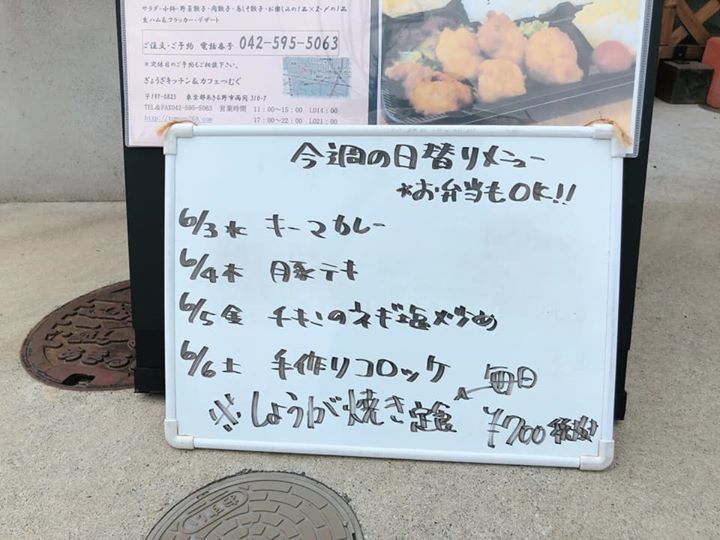 サラダ・小鉢・野菜餃子・肉餃子・鳥しそ餃子・お楽しみの1品×2・〆の1品
生ハム&クラッカー・デザート
ご注文・ご予約 電話番号 042-595-5063
※定休日のご予約もご相談下さい。
ぎょうざキッチン&カフェつむぐ
〒197-0823 東京都あきる野市両岡310-7
TEL&FAX042-595-5063 営業時間 11:00〜15:00 LO14:00
17:00〜22:00 LO21:00
今週の日替りメニュー
*お弁当もOK!!
6/3水 キーマカレー
6/4木 豚テキ
6/5金 チキンのネギ塩炒め
6/6土 手作りコロッケ
毎日
※しょうが焼き定食 ¥700税抜